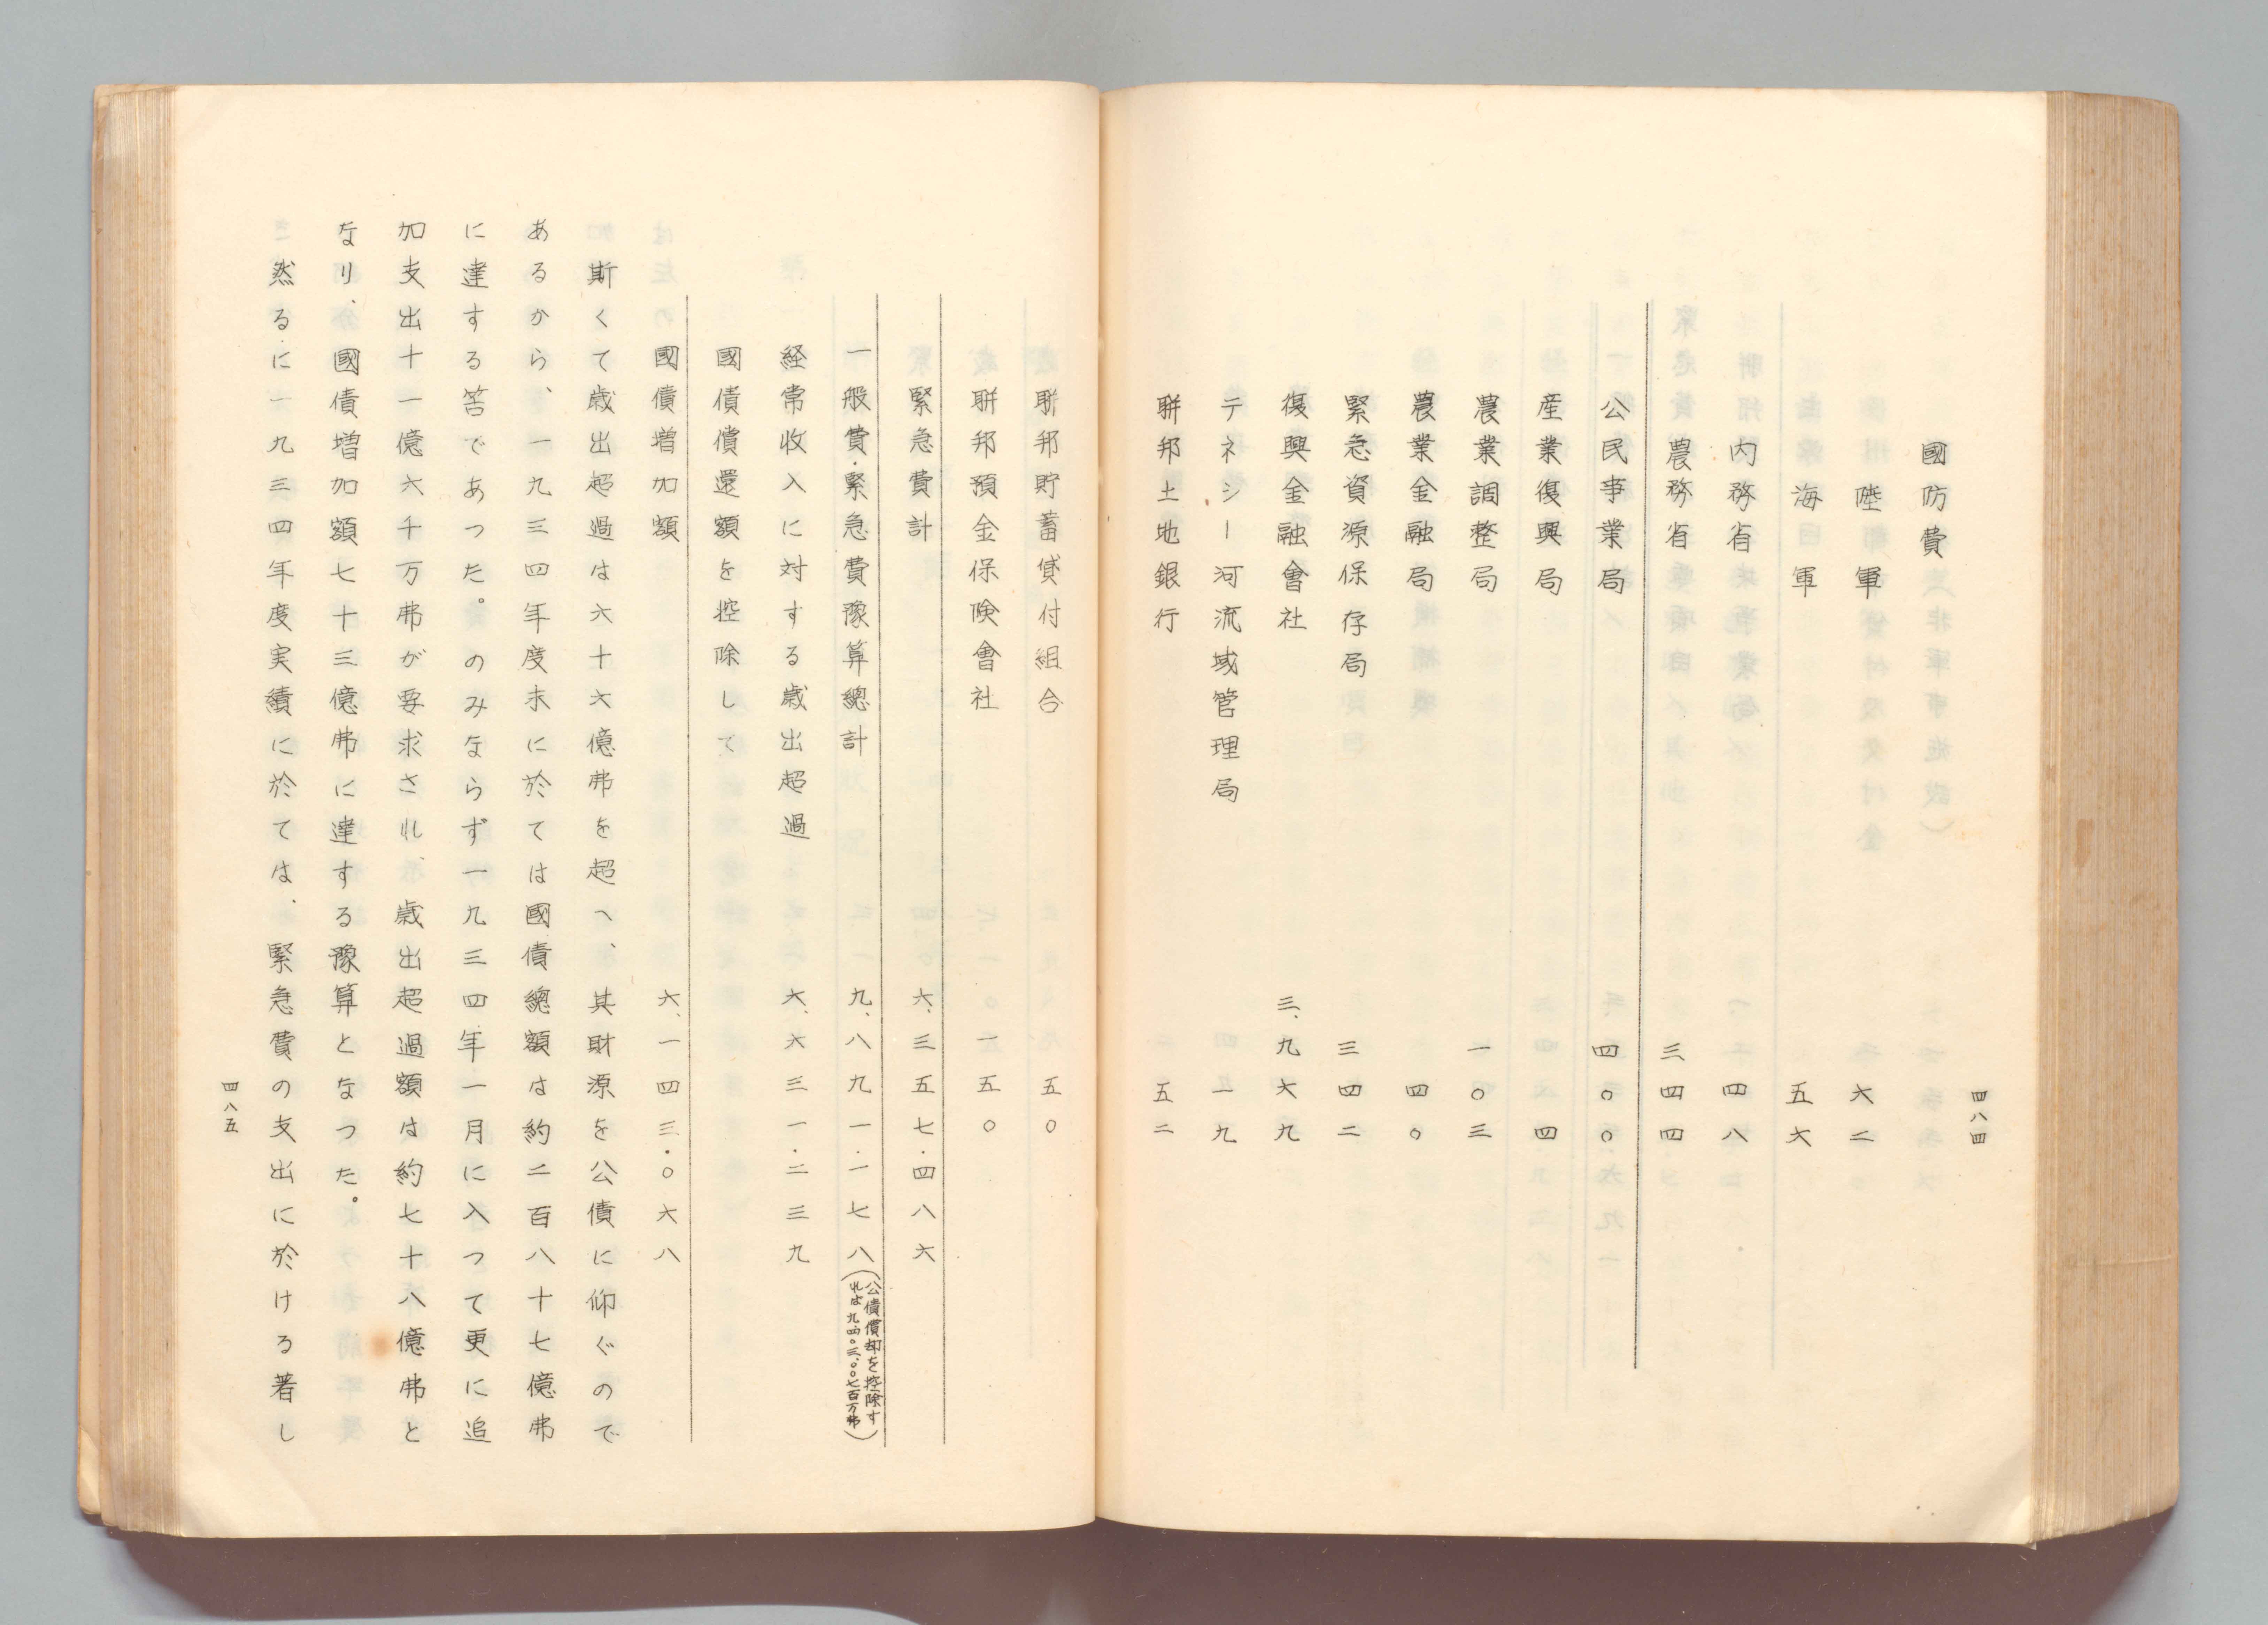 四八四
國防費
陸軍 六二
海軍 五六
内務省 四八
農務省 三四四
公民事業局 四〇〇
産業復興局 四
農業調整局 一〇三
農業金融局 四〇
緊急資源保存局 三四二
復興金融會社 三、九六九
テネシー河流域管理局 一九
聯邦土地銀行 五二
聯邦貯蓄貸付組合 五〇
聯邦預金保険會社 一五〇
緊急費計 六、三五七・四八六
一般費・緊急費豫算總計 九、八九一・一七八(公債償却を控除す
れば九、四〇三、〇〇七百万弗)
経常收入に対する歳出超過 六、六三一・二三九
國債償還額を控除して
國債増加額 六、一四三・〇六八
斯くて歳出超過は六十六億弗を超へ、其財源を公債に仰ぐので
あるから、一九三四年度末に於ては國債總額は約二百八十七億弗
に達する筈であつた。のみならず一九三四年一月に入つて更に追
加支出十一億六千万弗が要求され、歳出超過額は約七十八億弗と
なり、國債増加額七十三億弗に達する豫算となつた。
然るに一九三四年度実績に於ては、緊急費の支出に於ける著し
四八五